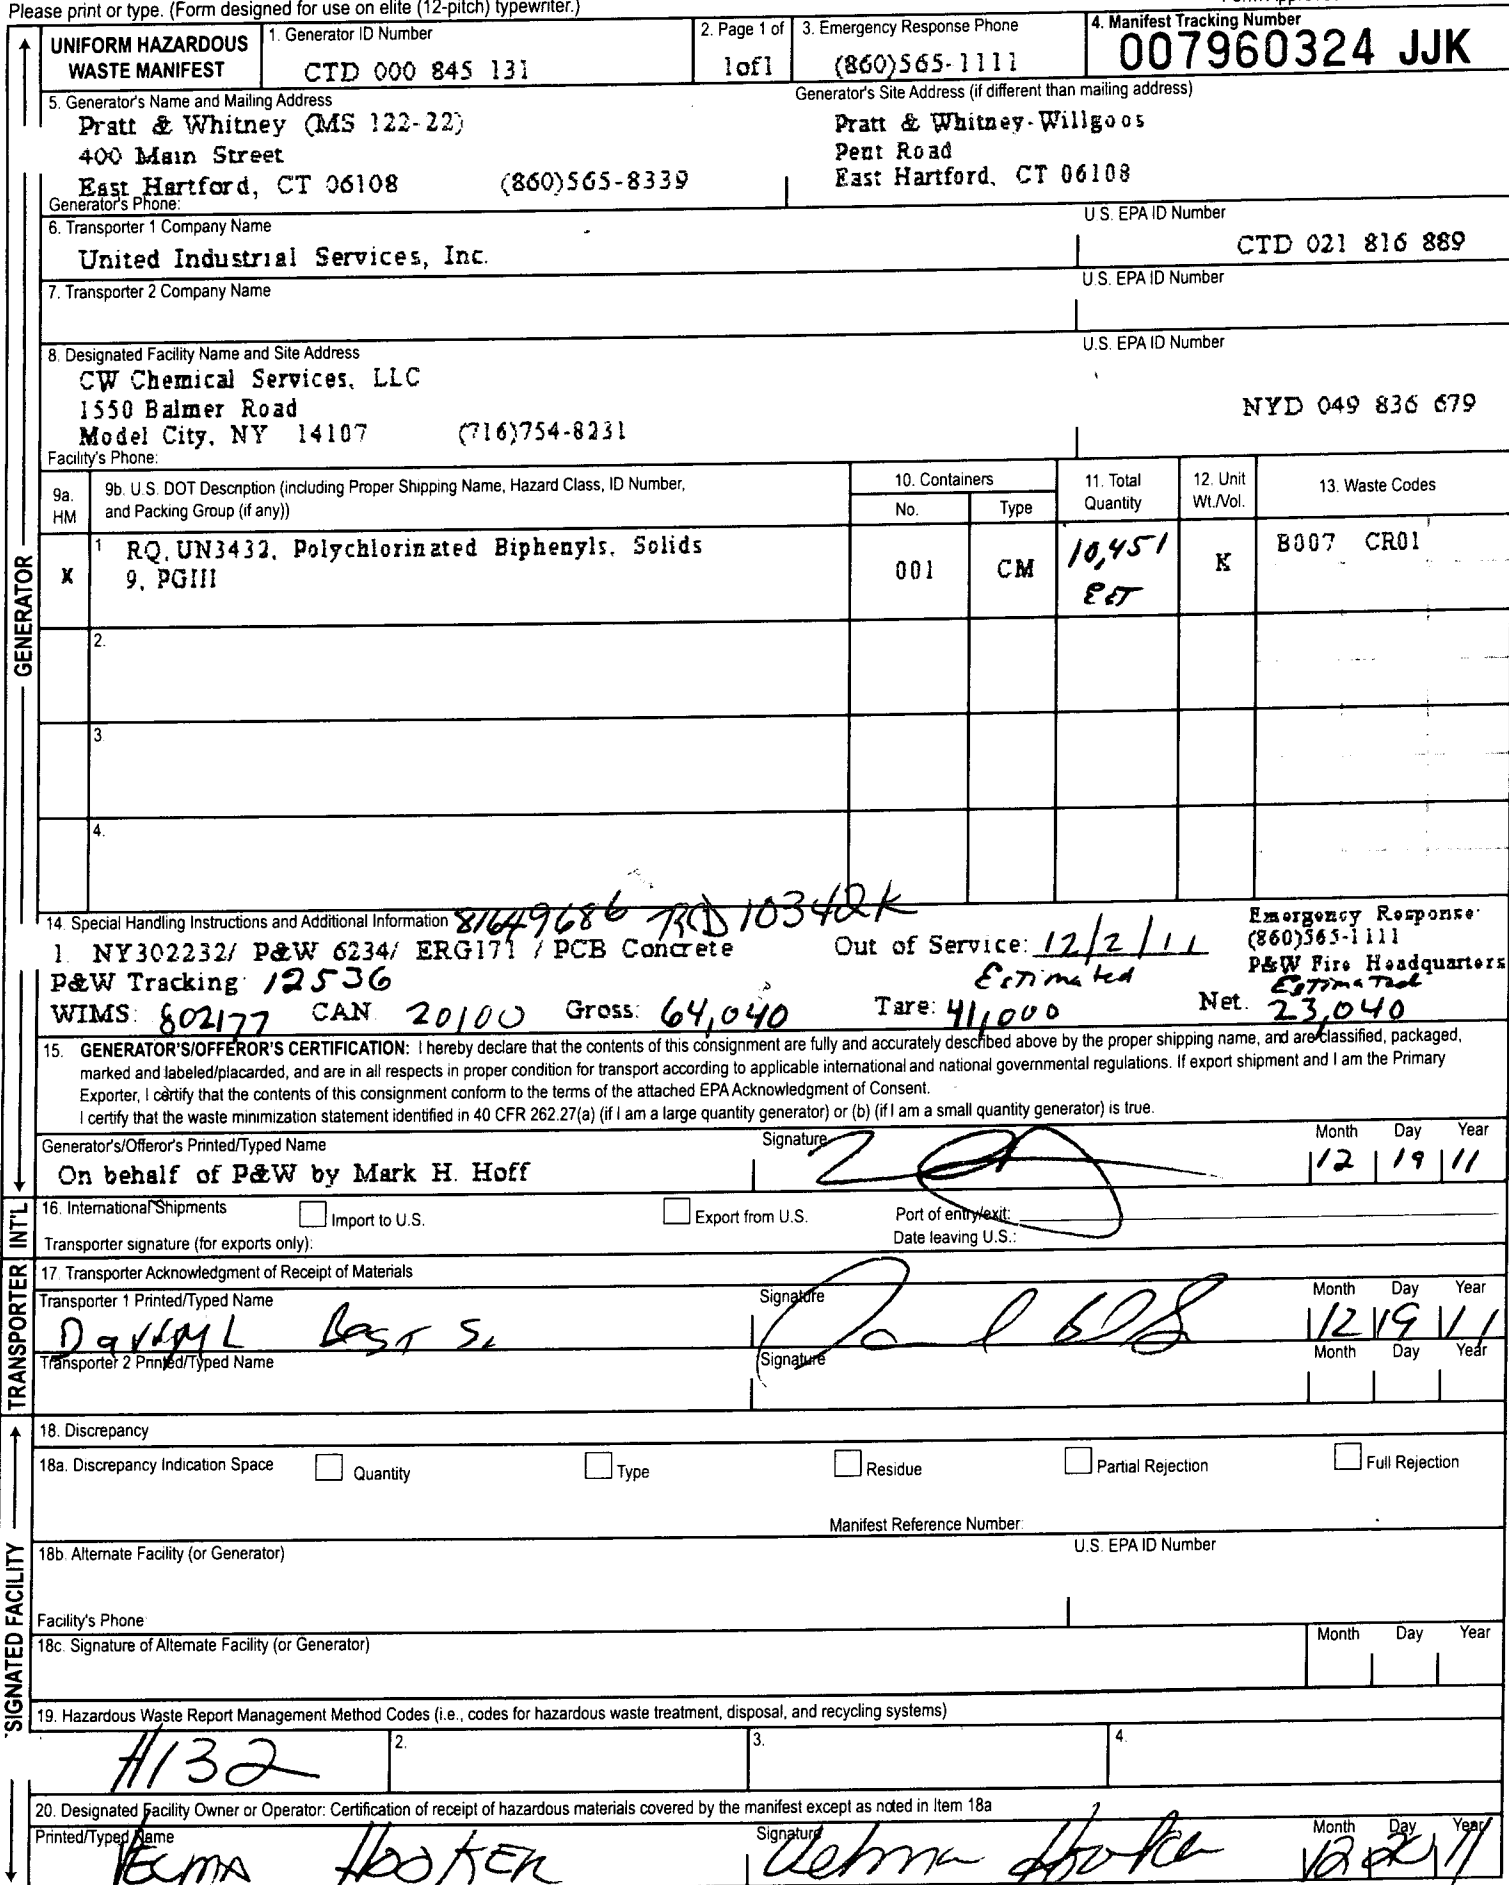 Please print or type. (Form designed for use on elite (12-pitch) typewriter.)
UNIFORM HAZARDOUS WASTE MANIFEST
1. Generator ID Number
CTD 000 845 131
2. Page 1 of
1of1
3. Emergency Response Phone
(860)565-1111
4. Manifest Tracking Number
007960324 JJK
5. Generator's Name and Mailing Address
Pratt & Whitney (MS 122-22)
400 Main Street
East Hartford, CT 06108 (860)565-8339
Generator's Phone:
Generator's Site Address (if different than mailing address)
Pratt & Whitney-Willgoos
Pent Road
East Hartford, CT 06108
6. Transporter 1 Company Name
United Industrial Services, Inc.
U.S. EPA ID Number
CTD 021 816 889
7. Transporter 2 Company Name
U.S. EPA ID Number
8. Designated Facility Name and Site Address
CW Chemical Services, LLC
1550 Balmer Road
Model City, NY 14107 (716)754-8231
Facility's Phone:
U.S. EPA ID Number
NYD 049 836 679
GENERATOR
9a. HM
9b. U.S. DOT Description (including Proper Shipping Name, Hazard Class, ID Number,
and Packing Group (if any))
10. Containers
No. Type
11. Total Quantity
12. Unit Wt./Vol.
13. Waste Codes
X
1 RQ, UN3432, Polychlorinated Biphenyls, Solids
9, PGIII
001 CM 10,451 EST K B007 CR01
2.
3
4.
14. Special Handling Instructions and Additional Information 81649686
1. NY302232/ P&W 6234/ ERG171 / PCB Concrete Out of Service: 12/2/11
Emergency Response:
(860)565-1111
P&W Fire Headquarters
P&W Tracking: 12536
Estimated
Estimated
WIMS: 802177 CAN 20100 Gross: 64,040 Tare: 41,000 Net. 23,040
15. GENERATOR'S/OFFEROR'S CERTIFICATION: I hereby declare that the contents of this consignment are fully and accurately described above by the proper shipping name, and are classified, packaged,
marked and labeled/placarded, and are in all respects in proper condition for transport according to applicable international and national governmental regulations. If export shipment and I am the Primary
Exporter, I certify that the contents of this consignment conform to the terms of the attached EPA Acknowledgment of Consent.
I certify that the waste minimization statement identified in 40 CFR 262.27(a) (if I am a large quantity generator) or (b) (if I am a small quantity generator) is true.
Generator's/Offeror's Printed/Typed Name
On behalf of P&W by Mark H. Hoff
Signature
Month Day Year
12 19 11
INT'L
16. International Shipments
Import to U.S.
Export from U.S.
Port of entry/exit:
Transporter signature (for exports only):
Date leaving U.S.:
TRANSPORTER
17. Transporter Acknowledgment of Receipt of Materials
Transporter 1 Printed/Typed Name
Signature
Month Day Year
12 19 11
Transporter 2 Printed/Typed Name
Signature
Month Day Year
SIGNATED FACILITY
18. Discrepancy
18a. Discrepancy Indication Space
Quantity
Type
Residue
Partial Rejection
Full Rejection
Manifest Reference Number:
18b. Alternate Facility (or Generator)
U.S. EPA ID Number
Facility's Phone
18c. Signature of Alternate Facility (or Generator)
Month Day Year
19. Hazardous Waste Report Management Method Codes (i.e., codes for hazardous waste treatment, disposal, and recycling systems)
H132
2.
3.
4.
20. Designated Facility Owner or Operator: Certification of receipt of hazardous materials covered by the manifest except as noted in Item 18a
Printed/Typed Name
VELMA HOOKER
Signature
Velma Hooker
Month Day Year